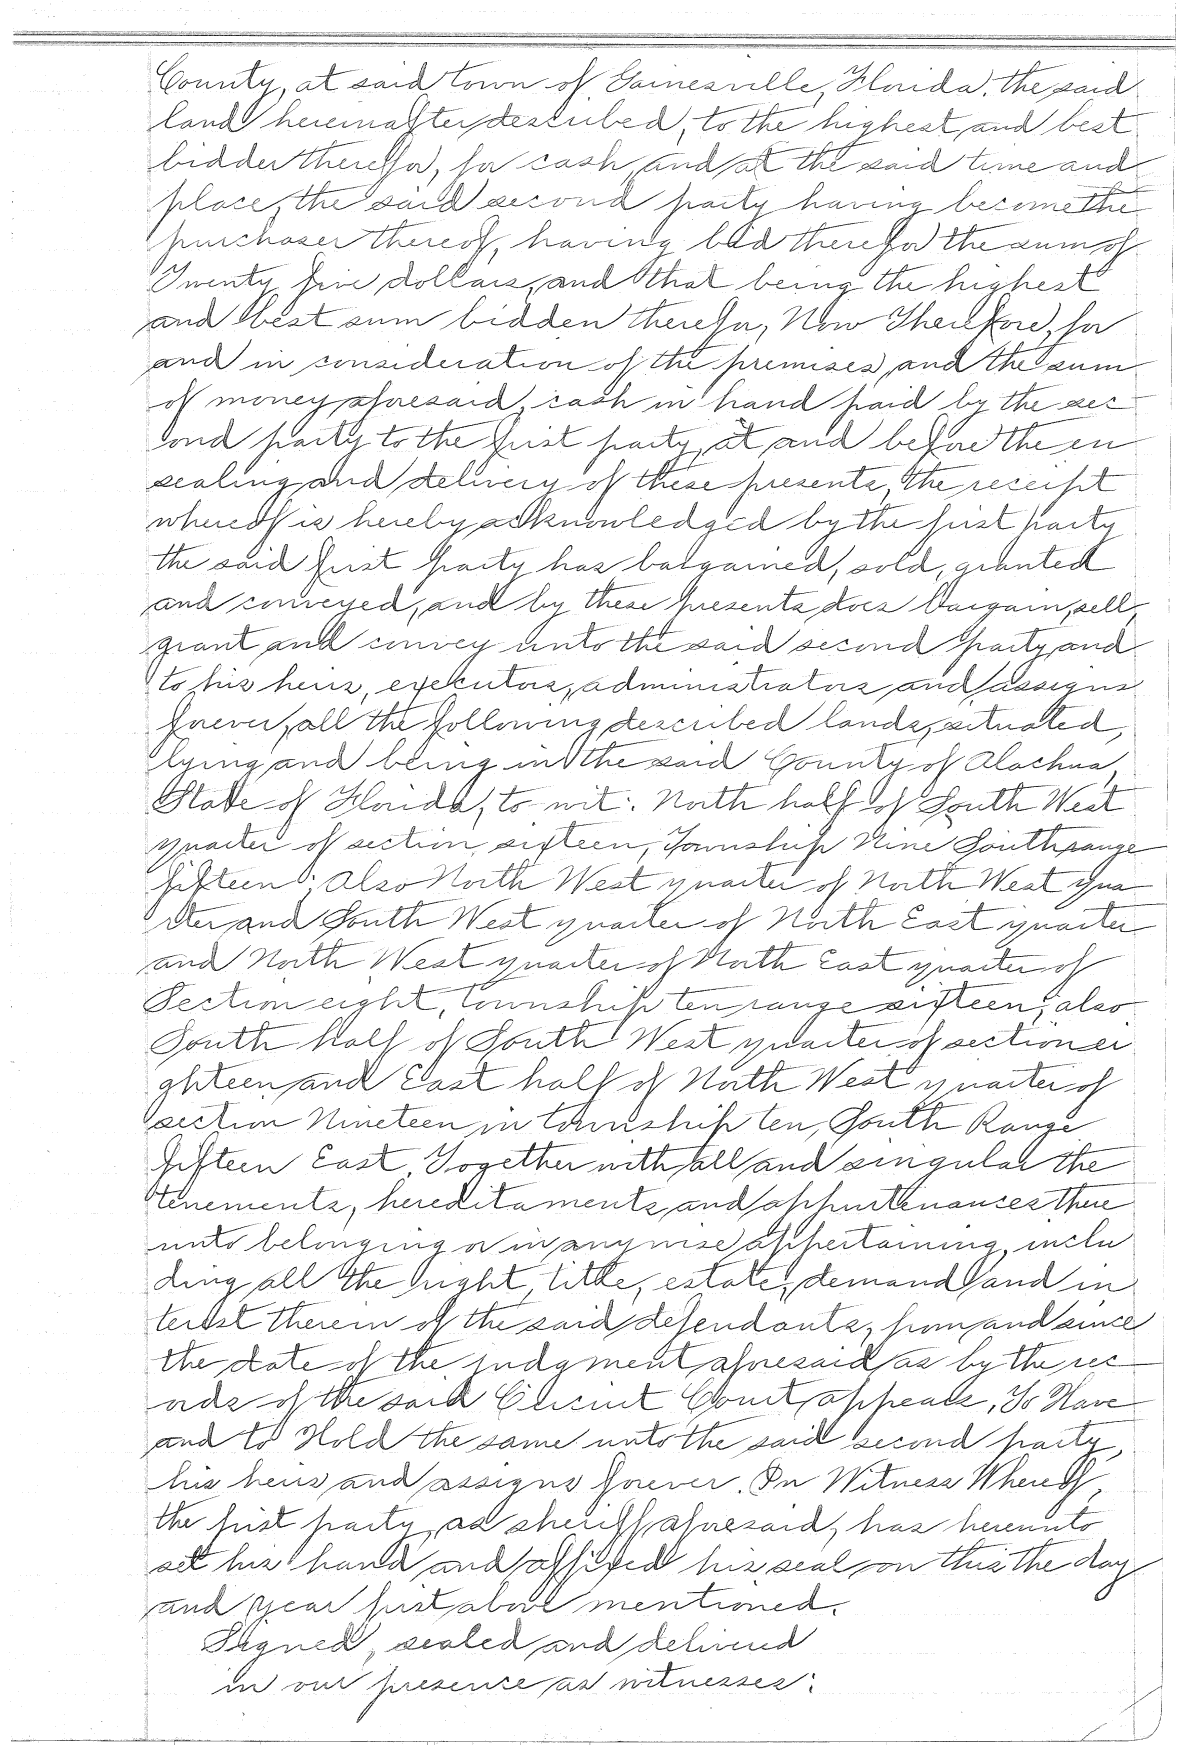 County, at said town of Gainesville, Florida, the said
land hereinafter described, to the highest and best
bidder therefor, for cash, and at the said time and
place, the said second party having become the
purchaser thereof, having bid therefor the sum of
Twenty five dollars, and that being the highest
and best sum bidden therefor, Now Therefore, for
and in consideration of the premises, and the sum
of money aforesaid, cash in hand paid by the sec
ond party to the first party, at and before the en
sealing and delivery of these presents, the receipt
whereof is hereby acknowledged by the first party
the said first party has bargained, sold, granted
and conveyed, and by these presents does bargain, sell,
grant and convey unto the said second party and
to his heirs, executors, administrators and assigns
forever, all the following described lands, situated,
lying and being in the said County of Alachua,
State of Florida, to wit: North half of South West
quarter of section sixteen, Township Nine South range
fifteen; Also North West quarter of North West qua
rter and South West quarter of North East quarter
and North West quarter of North East quarter of
Section eight, township ten range sixteen; also
South half of South West quarter of section ei
ghteen and East half of North West quarter of
section Nineteen in township ten, South Range
fifteen East, Together with all and singular the
tenements, hereditaments and appurtenances there
unto belonging or in anywise appertaining, inclu
ding all the right, title, estate, demand and in
terest therein of the said defendants, from and since
the date of the judgment aforesaid as by the rec
ords of the said Circuit Court, appears, To Have
and to Hold the same unto the said second party,
his heirs and assigns forever. In Witness Whereof,
the first party, as sheriff aforesaid, has hereunto
set his hand and affixed his seal on this the day
and year first above mentioned.
Signed, sealed and delivered
in our presence as witnesses: